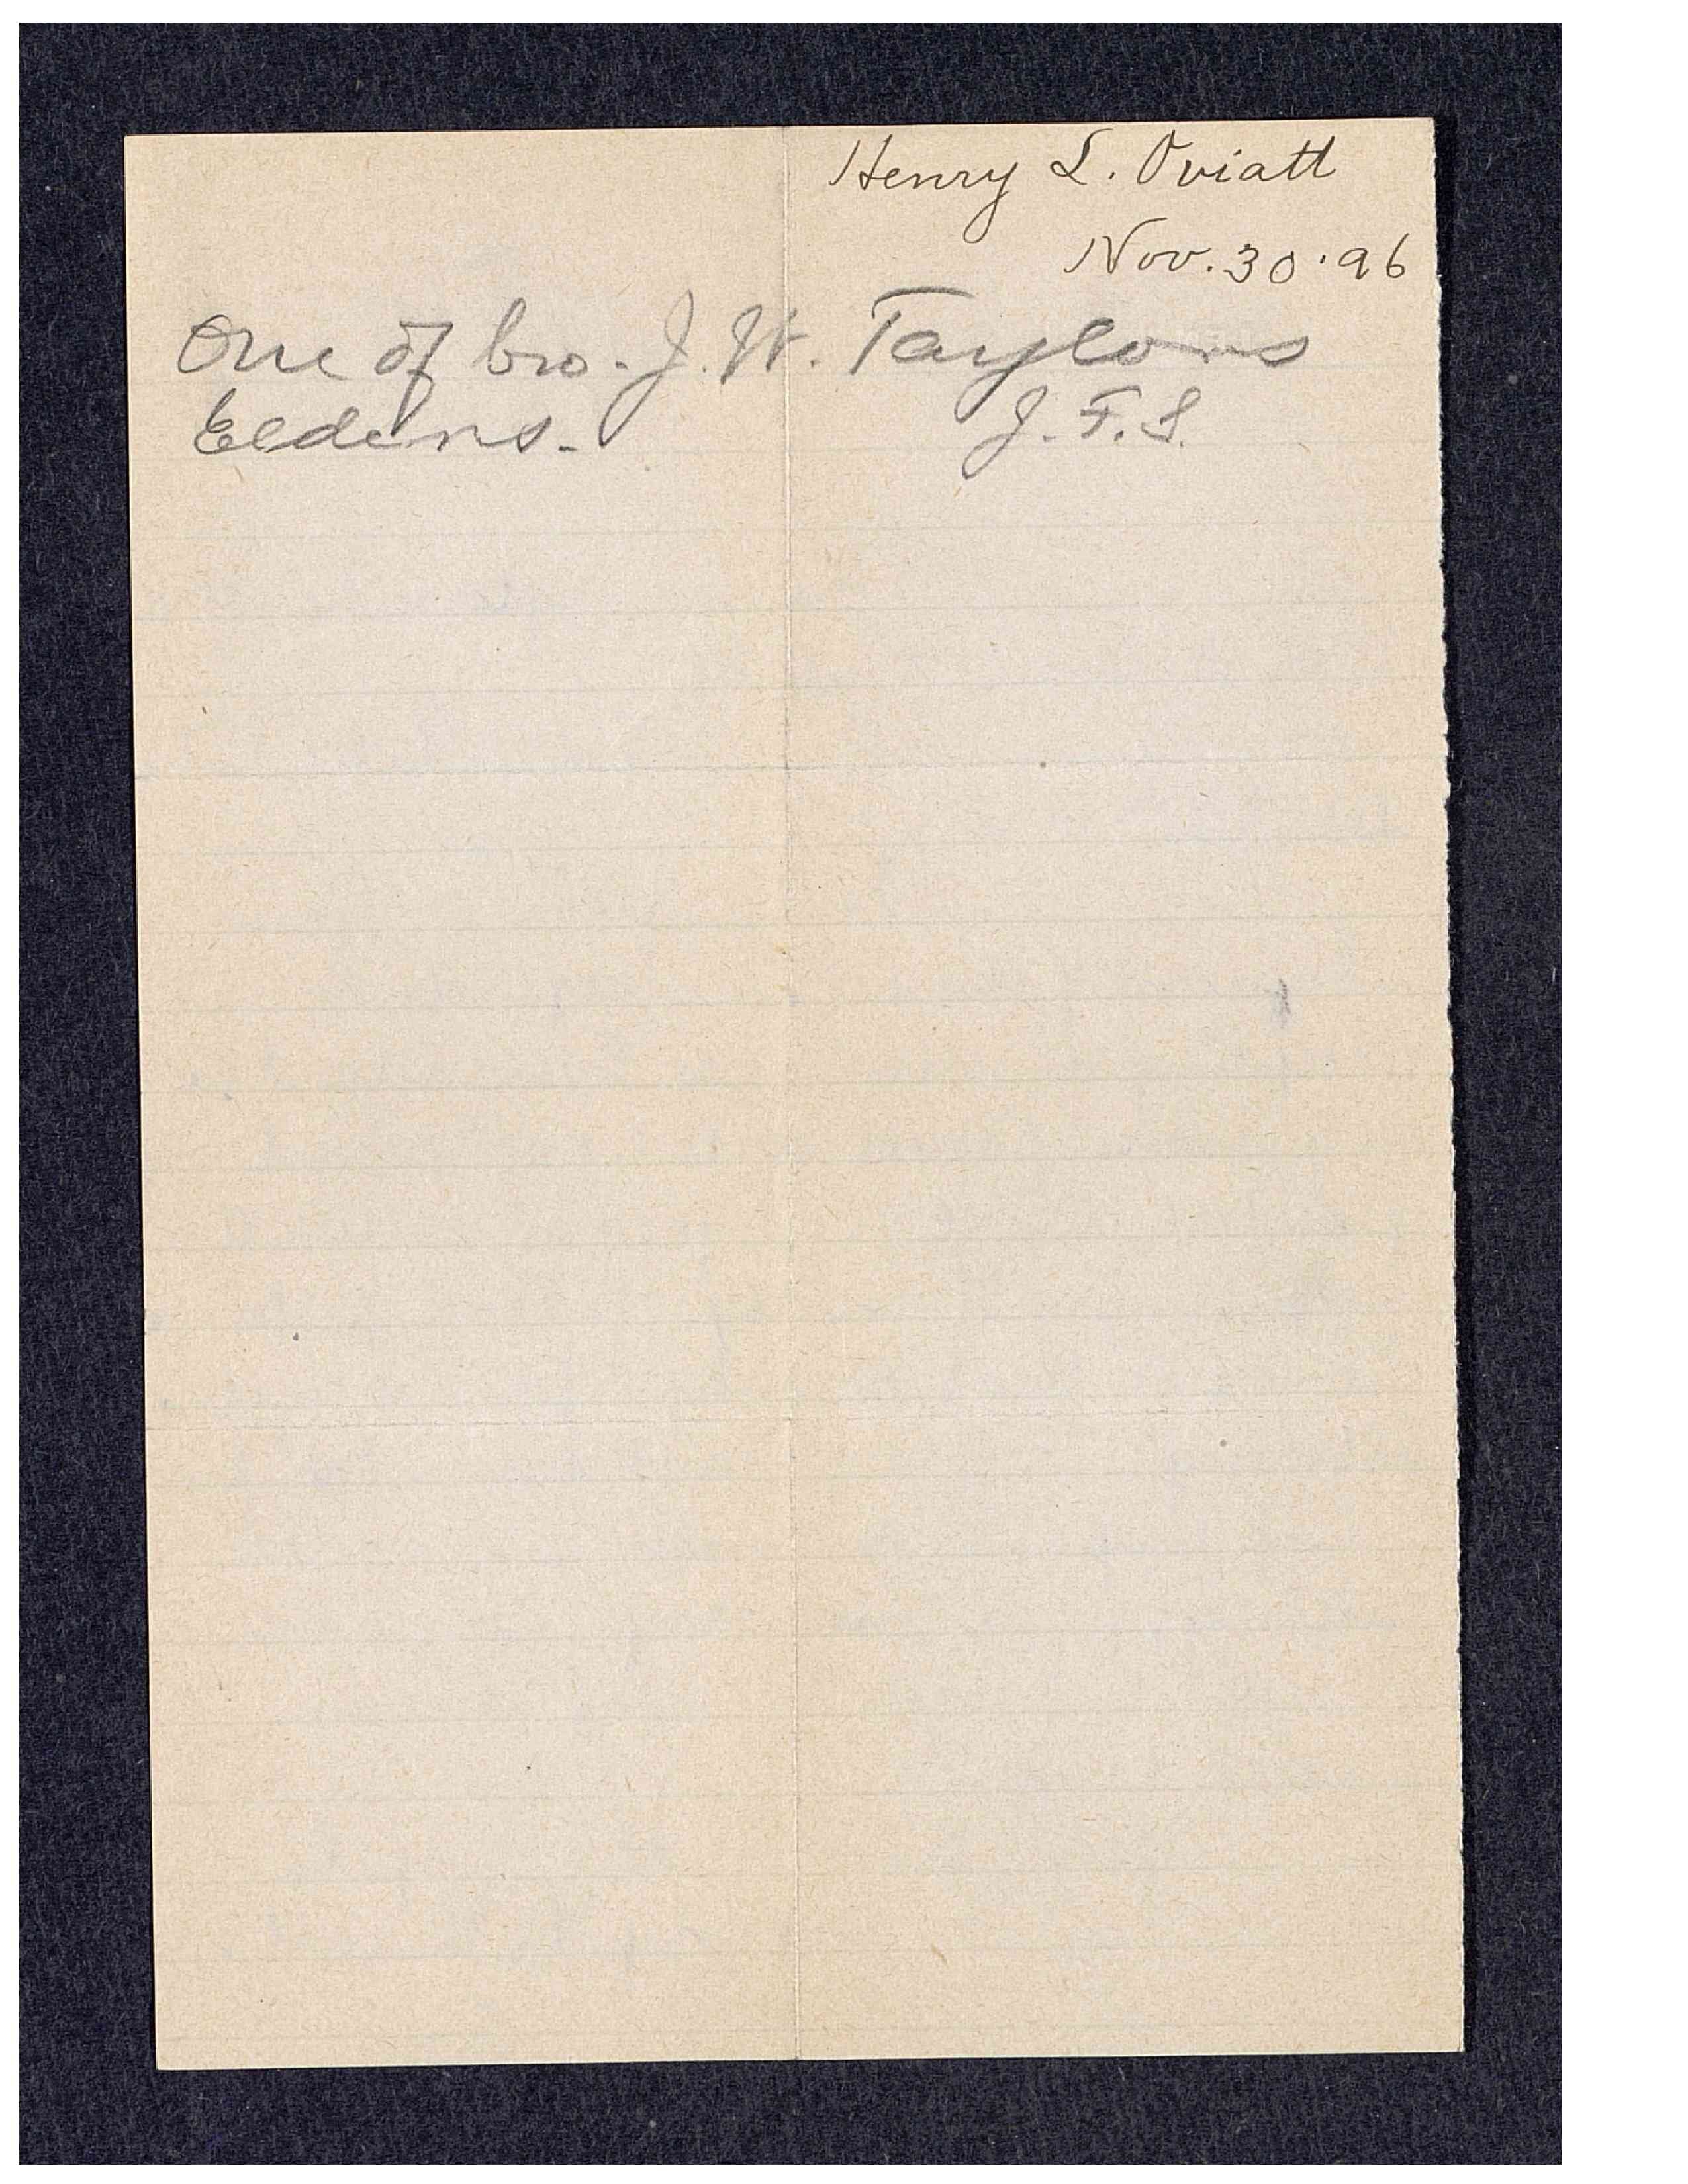 Henry L. Oviatt
Nov. 30 '96
One of bro. J. W. Taylors
Elders. J. F. S.